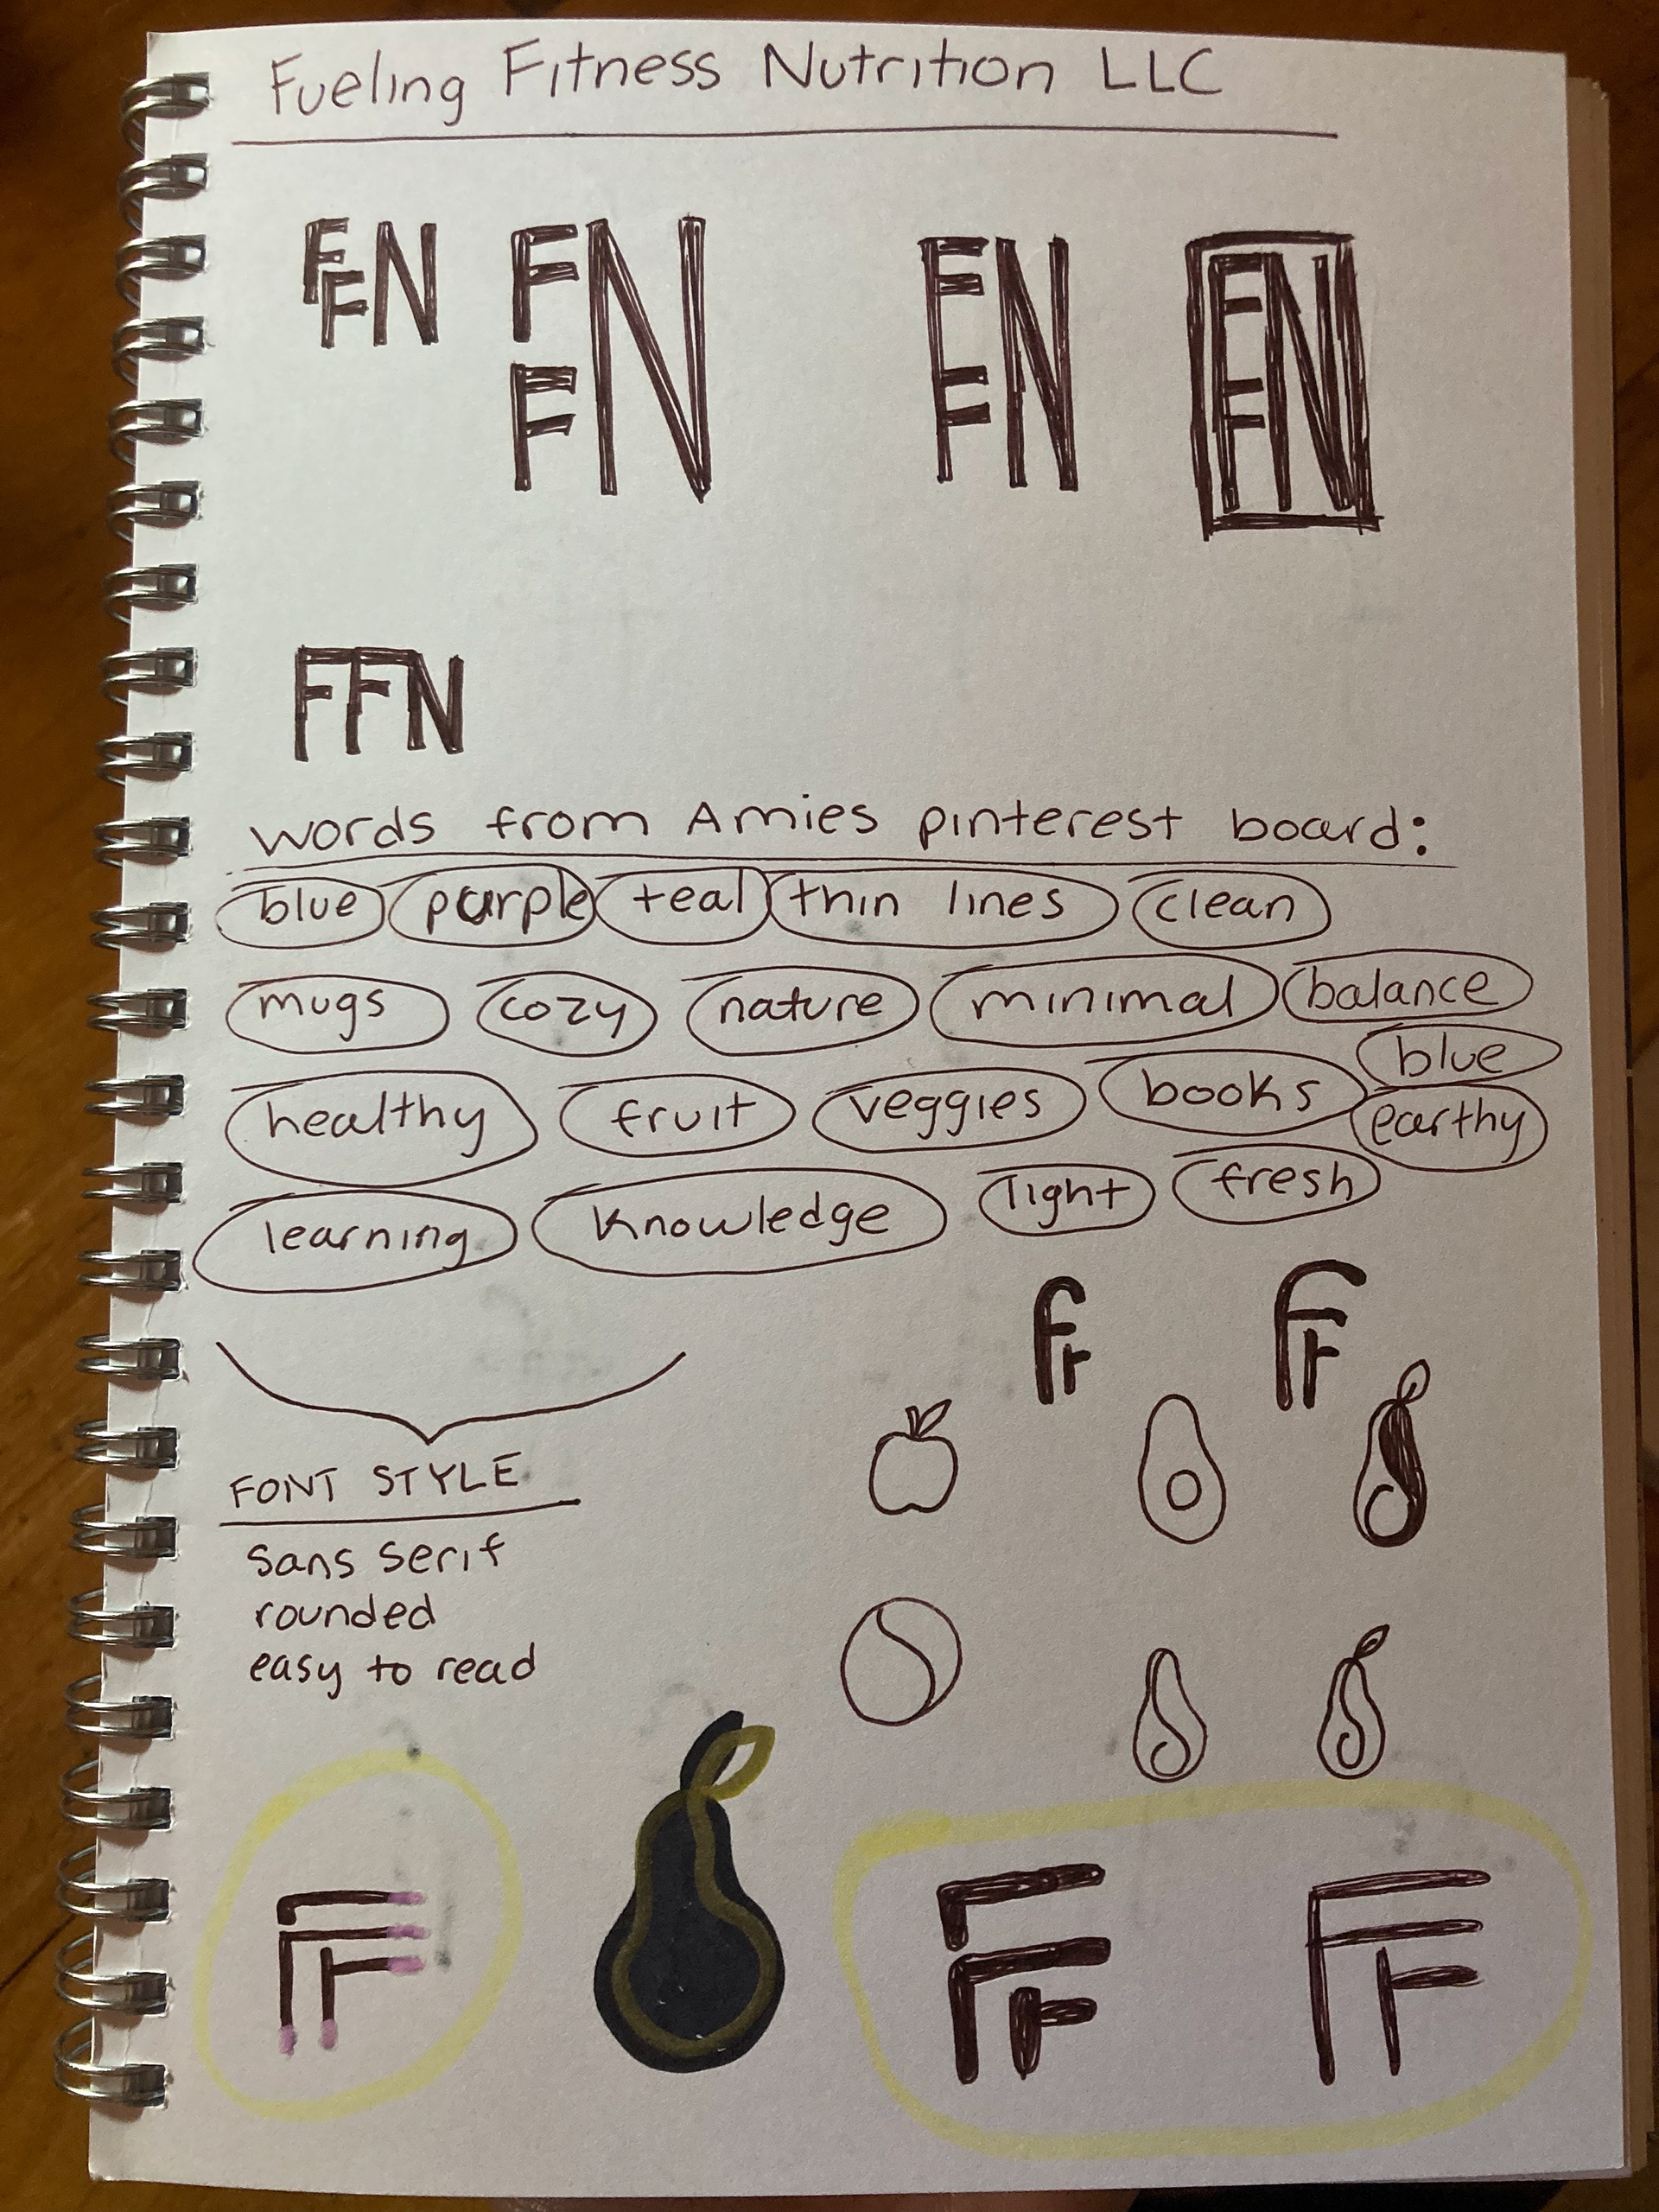 Fueling Fitness Nutrition LLC
FFN FFN FFN FFN
FFN
words from Amies pinterest board:
blue purple teal thin lines clean
mugs cozy nature minimal balance
blue
healthy fruit veggies books earthy
learning knowledge light fresh
FF FF
FONT STYLE
sans serif
rounded
easy to read
FF FF FF